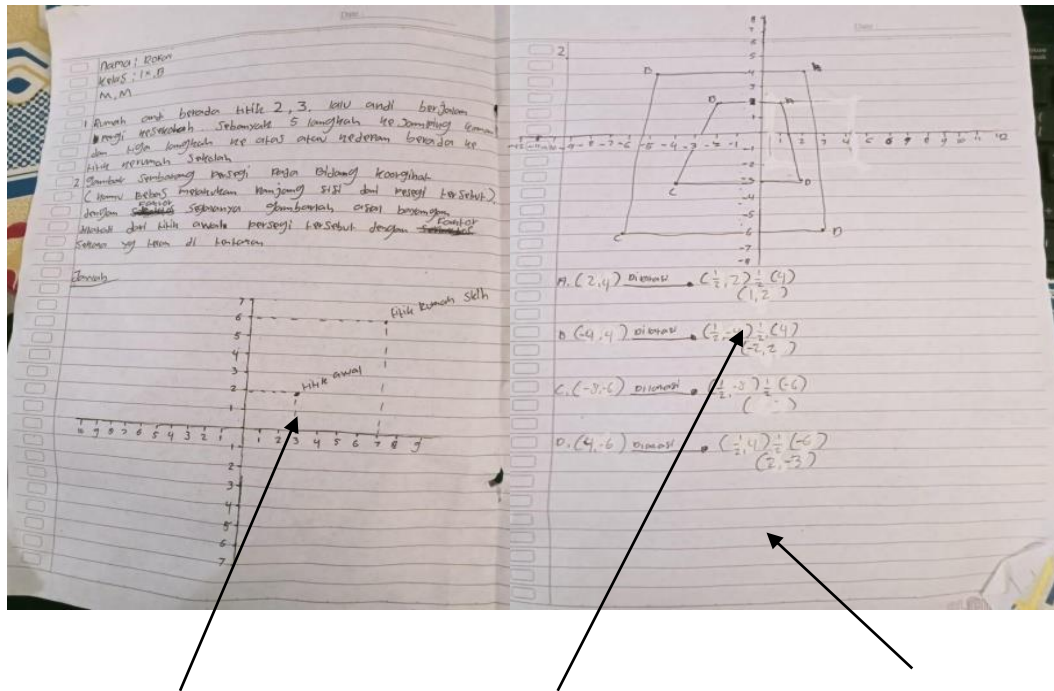 Date
Nama : Rofan
Kelas : IX.B
M,M
1 Rumah andi berada titik 2,3. lalu andi berjalan
pergi kesekolah sebanyak 5 langkah ke samping kanan
dan tiga langkah ke atas atau kedepan berada ke
titik kerumah sekolah
2 Gambar sembarang persegi pada Bidang koorginat
(kamu Bebas panjang sisi dari pesegi tersebut).
dengan Fantor segaranya gambarlah asal bayangan
dilatasi dari titik awal persegi tersebut dengan Fantor
yg di
Jawab
7
6
5
4
3
2
1
titik Rumah Sklh
titik awal
9 8 7 6 5 4 3 2 1
1 2 3 4 5 6 7 8 9
1
2
3
4
5
6
7
Date
2
8
7
6
5
4
3
1
B A
B A
-7 -6 -5 -4 -3 -2 -1
1 2 3 4 5 6 7 8 9 10 11 12
-1
-3
-5
-6
-7
-8
C D
C D
A. (2,4) Dilatasi (1/2, 2) 1/2 (4)
(1,2)
B (-4,4) Dilatasi (1/2, -4) 1/2, (4)
(-2,2)
C. (-3,-6) Dilatasi (1/2, -3) 1/2 (-6)
( )
D. (4,-6) Dilatasi (1/2, 4) 1/2 (-6)
(2,-3)